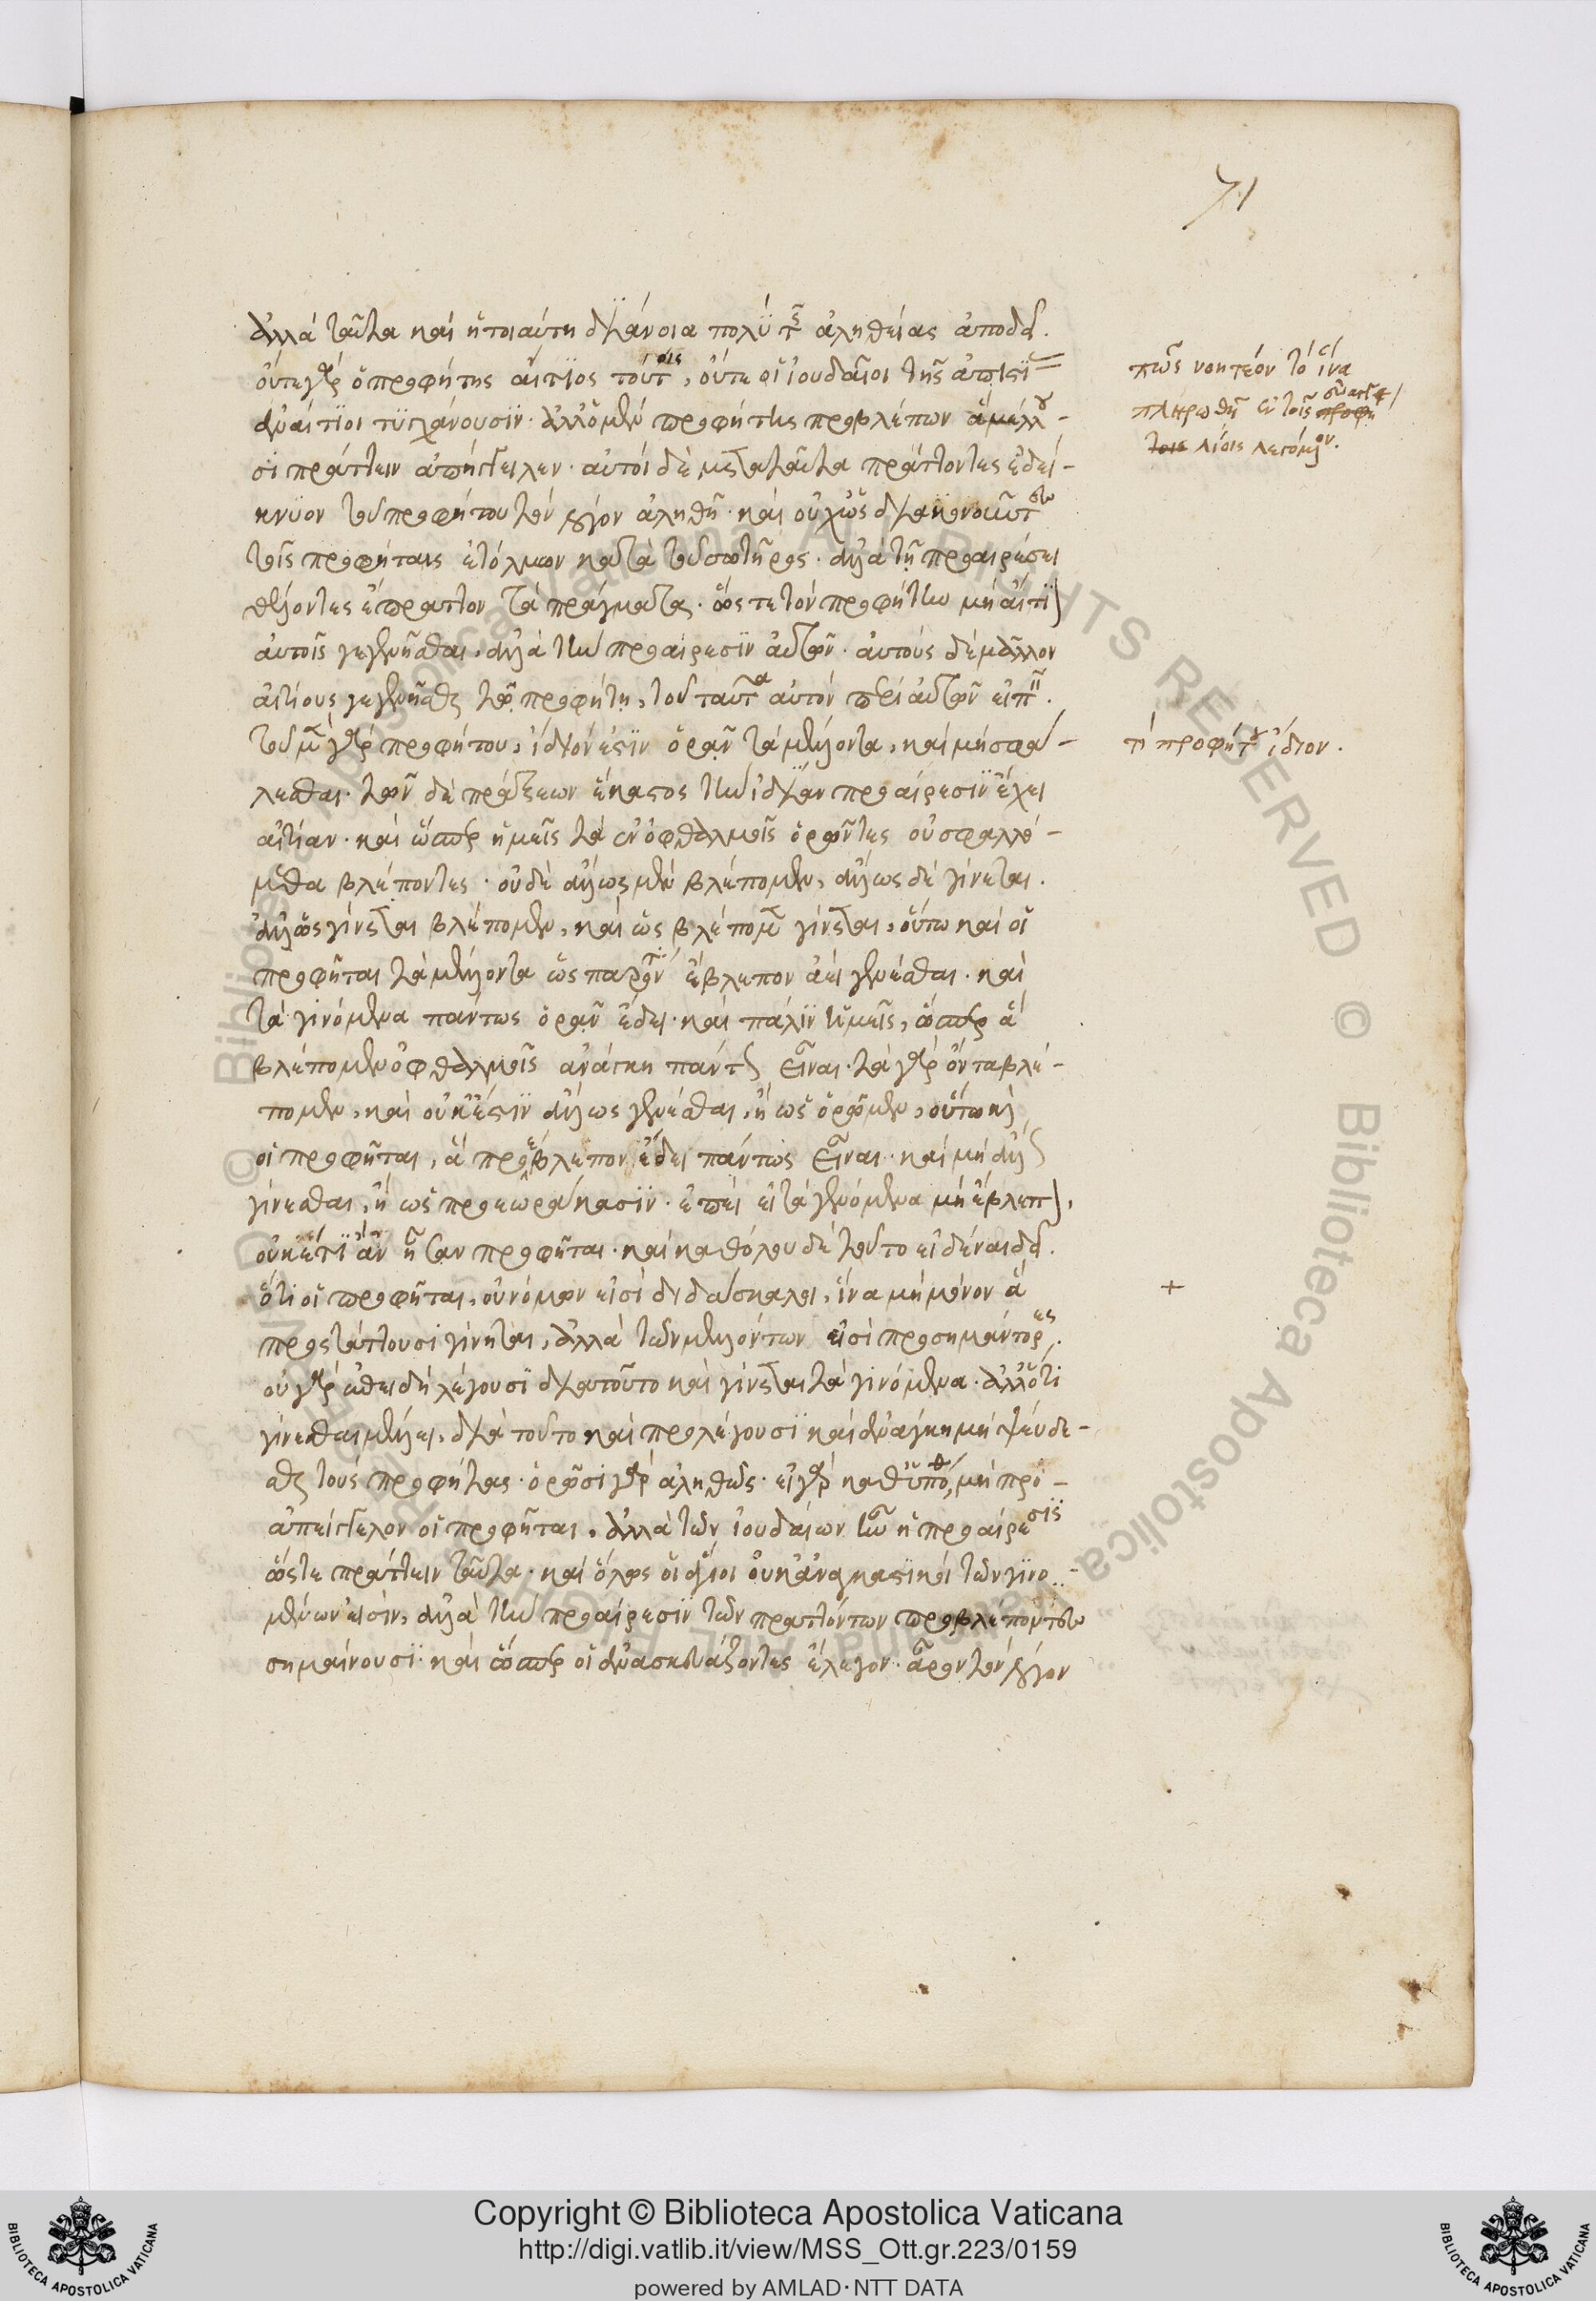 71
ἀλλὰ ταῦτα καὶ ἡ τοιαύτη διάνοια πολὺ τῆς ἀληθείας ἀποδεῖ.
οὔτε γὰρ ὁ προφήτης αἴτιος τούτοις, οὔτε οἱ ἰουδαῖοι τῆς ἀπιστί-
ἀναίτιοι τυγχάνουσιν. ἀλλ' ὁ μὲν προφήτης προβλέπων ἃ μέλλου-
σι πράττειν ἀπήγγειλεν. αὐτοὶ δὲ μετὰ ταῦτα πράττοντες ἐδεί-
κνυον τοῦ προφήτου τὸν λόγον ἀληθῆ. καὶ οὐχ ὡς διακονοῦντες
τοῖς προφήταις ἐτόλμων κατὰ τοῦ σωτῆρος. ἀλλὰ τῇ προαιρέσει
θέλοντες ἔπραττον τὰ πράγματα. ὥστε τὸν προφήτην μὴ αἴτιον
αὐτοῖς γεγενῆσθαι, ἀλλὰ τὴν προαίρεσιν αὐτῶν. αὐτοὺς δὲ μᾶλλον
αἰτίους γεγενῆσθαι τῷ προφήτῃ, τοῦ ταῦτα αὐτὸν περὶ αὐτῶν εἰπεῖν.
τοῦ μὲν γὰρ προφήτου, ἴδιόν ἐστιν ὁρᾶν τὰ μέλλοντα, καὶ μὴ σφάλ-
λεσθαι. τῶν δὲ πράξεων ἕκαστος τὴν ἰδίαν προαίρεσιν ἔχει
αἰτίαν. καὶ ὥσπερ ἡμεῖς τὰ ἐν ὀφθαλμοῖς ὁρῶντες οὐ σφαλλό-
μεθα βλέποντες. οὐδὲ ἄλλως μὲν βλέπομεν, ἄλλως δὲ γίνεται.
ἀλλ' ὡς γίνεται βλέπομεν, καὶ ὡς βλέπομεν γίνεται, οὕτω καὶ οἱ
προφῆται τὰ μέλλοντα ὡς παρόντα ἔβλεπον ἀεὶ γενέσθαι. καὶ
τὰ γινόμενα πάντως ὁρᾶν ἔδει. καὶ πάλιν ἡμεῖς, ὥσπερ ἃ
βλέπομεν ὀφθαλμοῖς ἀνάγκη πάντως εἶναι. τὰ γὰρ ὄντα βλέ-
πομεν, καὶ οὐκ ἔστιν ἄλλως γενέσθαι, ἢ ὡς ὁρῶμεν, οὕτω καὶ
οἱ προφῆται, ἃ προέβλεπον ἔδει πάντως εἶναι. καὶ μὴ ἄλλως
γίνεσθαι, ἢ ὡς προεωράκασιν. ἐπεὶ εἰ τὰ γενόμενα μὴ ἔβλεπον,
οὐκέτι ἂν ἦσαν προφῆται. καὶ καθόλου δὲ τοῦτο εἰδέναι δεῖ.
ὅτι οἱ προφῆται, οὐ νόμων εἰσὶ διδάσκαλοι, ἵνα μὴ μόνον ἃ
προστάττουσι γίνηται, ἀλλὰ τῶν μελλόντων εἰσὶ προσημάντορες.
οὐ γὰρ ἐπειδὴ λέγουσι διὰ τοῦτο καὶ γίνεται τὰ γινόμενα. ἀλλ' ὅτι
γίνεσθαι μέλλει, διὰ τοῦτο καὶ προλέγουσι καὶ ἀνάγκη μὴ ψεύδε-
σθαι τοὺς προφήτας. ὁρῶσι γὰρ ἀληθῶς. εἰ γὰρ καθ' ὑπόθ, μὴ προ-
απήγγελον οἱ προφῆται, ἀλλὰ τῶν ἰουδαίων ἦν ἡ προαίρεσις
ὥστε πράττειν ταῦτα. καὶ ὅλως οἱ ἅγιοι οὐκ ἀναγκαστικοὶ τῶν γινο-
μένων εἰσὶν, ἀλλὰ τὴν προαίρεσιν τῶν πραττόντων προβλέποντες
σημαίνουσι. καὶ ὥσπερ οἱ ἀνασκευάζοντες ἔλεγον. ἆρον τὸν λόγον
πῶς νοητέον τὸ ἵνα
πληρωθῇ ἐν τοῖς
λίοις λεγόμενον.
τί προφήτου ἴδιον.
+
Copyright © Biblioteca Apostolica Vaticana
http://digi.vatlib.it/view/MSS_Ott.gr.223/0159
powered by AMLAD·NTT DATA
BIBLIOTECA APOSTOLICA VATICANA
BIBLIOTECA APOSTOLICA VATICANA